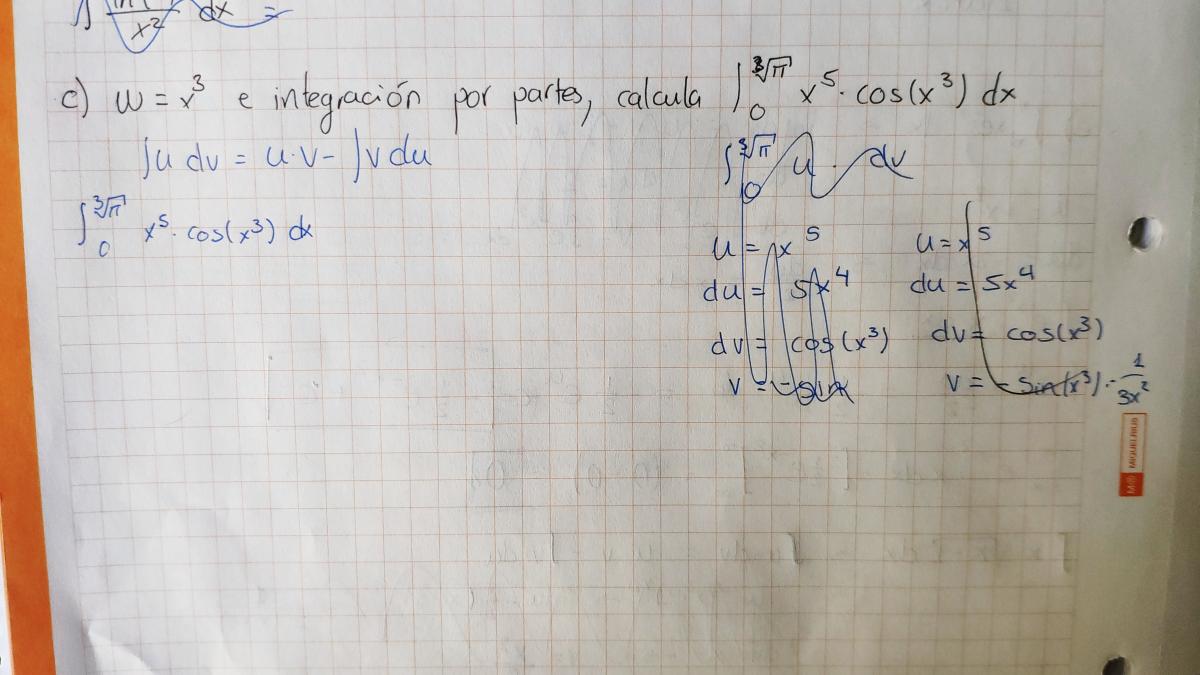 ∫ ln( / x² dx =
c) w = x³ e integración por partes, calcula ∫₀^∛π x⁵ · cos(x³) dx
∫u dv = u·v - ∫v du
∫₀^∛π u · dv
∫₀^∛π x⁵ · cos(x³) dx
u = x⁵
du = 5x⁴
dv = cos(x³)
v = -sin
u = x⁵
du = 5x⁴
dv = cos(x³)
v = -sin(x³) · 1/3x²
MIQUELRIUS